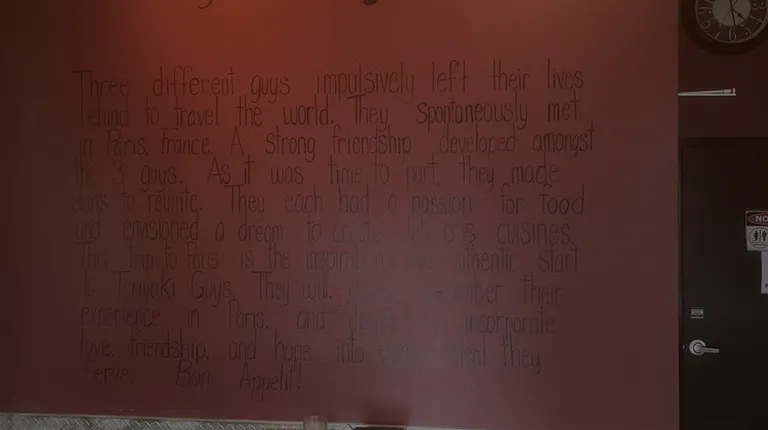 Three different guys impulsively left their lives
behind to travel the world. They spontaneously met
in Paris, France. A strong friendship developed amongst
the 3 guys. As it was time to part, they made
plans to reunite. They each had a passion for food
and envisioned a dream to create cuisines.
This trip to Paris is the inspiration authentic start
to Teriyaki Guys. They will their
experience in Paris, and incorporate
love, friendship, and hope into meal they
serve. Bon Appetit!
NO